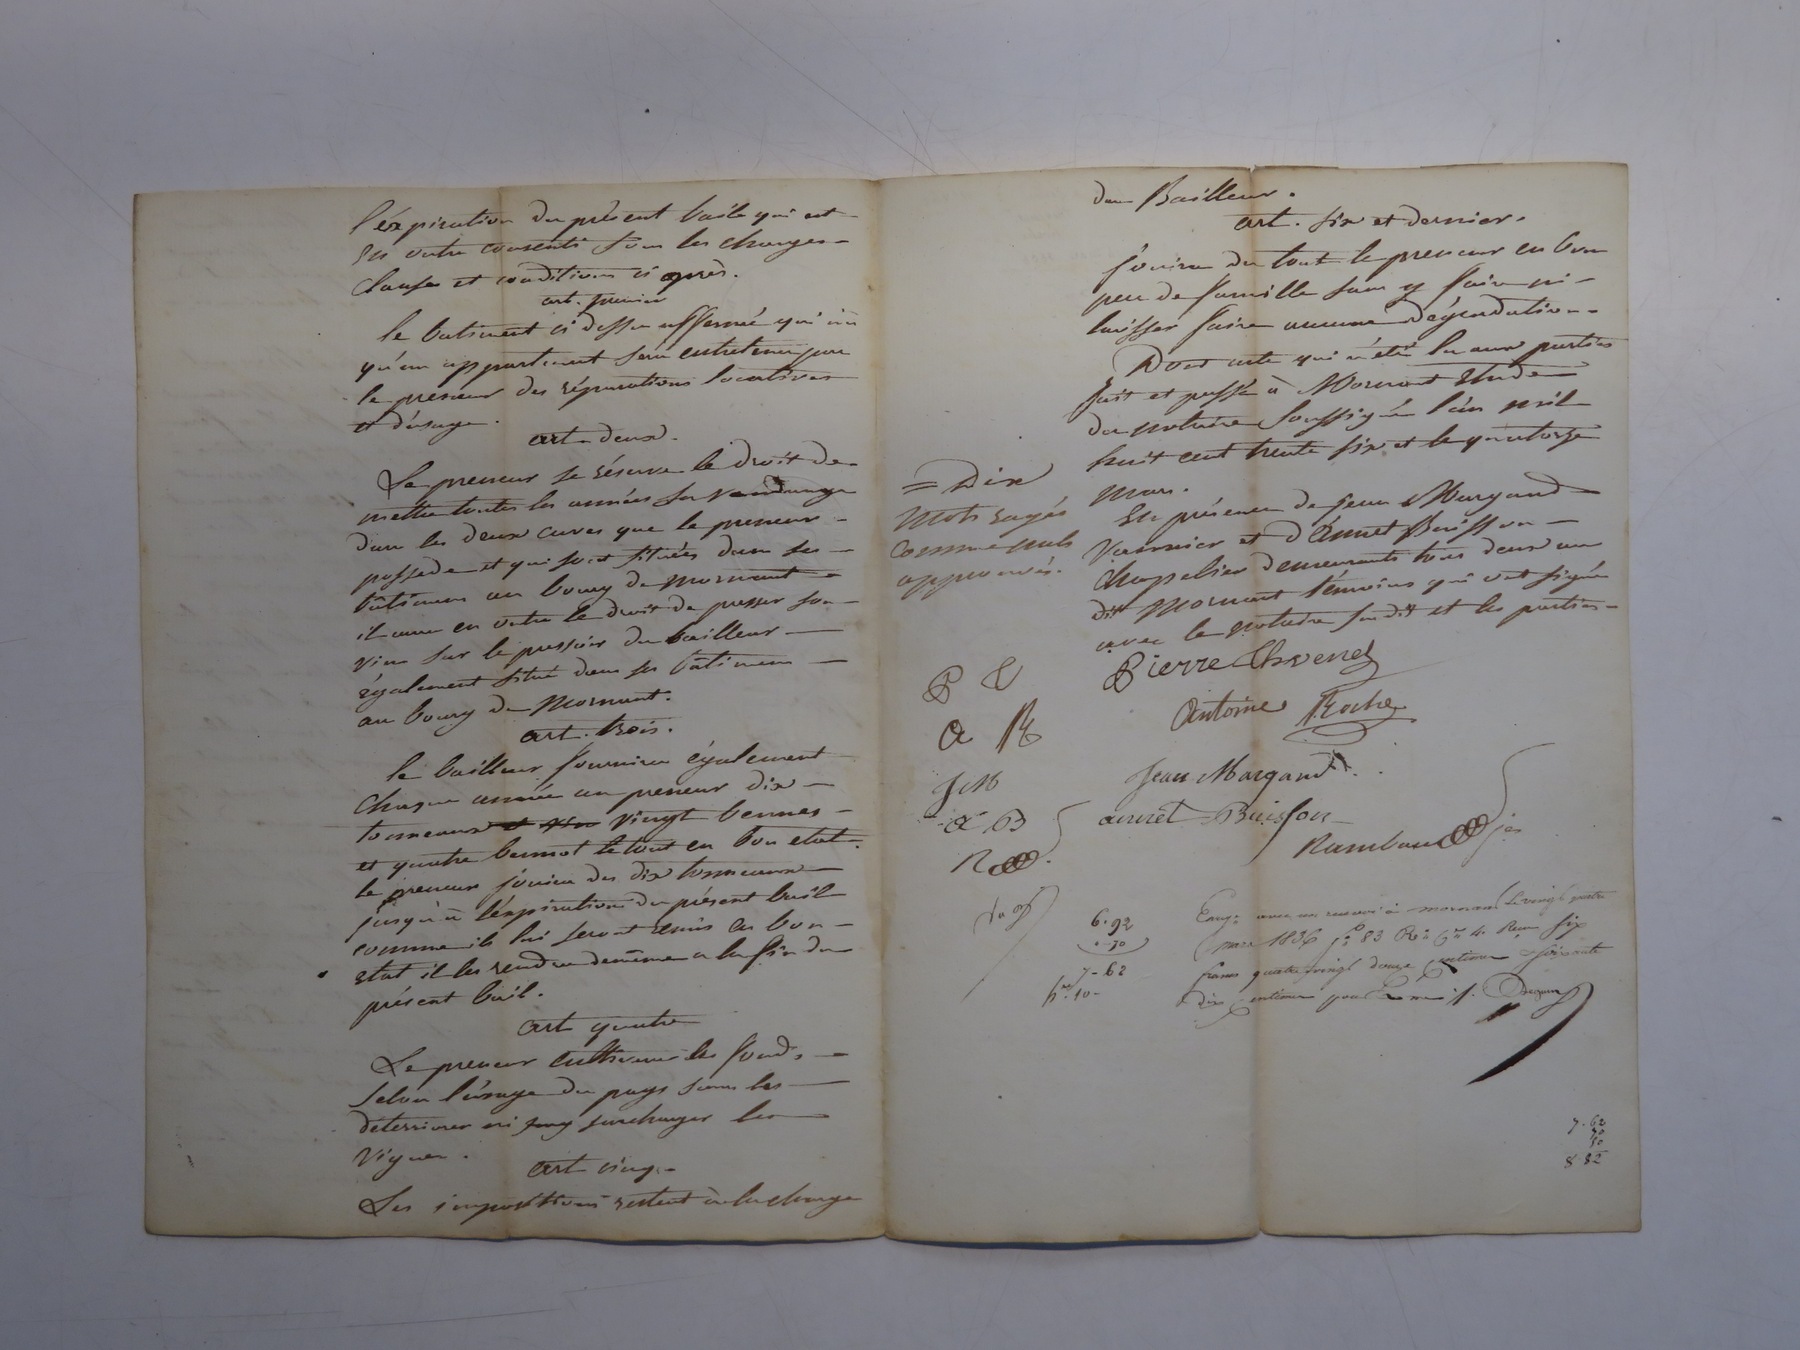 l'éxpiration du présent baile qui est
en outre consenti sous les charges
clauses et conditions ci après.
art. premier
le batiment ci dessus affermé qui n'a
qu'un appartement sera entretenu par
le preneur des réparations locatives
et d'usage.
art deux.
Le preneur se réserve le droit de
mettre toutes les années sa vendange
dans les deux cuves que le preneur
possede et qui sont situées dans ses
bâtimens au bourg de Mornant
il aura en outre le droit de presser son
vin sur le pressoir du bailleur
également situé dans ses bâtimens
au bourg de Mornant.
art. trois.
le bailleur fournira également
chaque année au preneur dix
tonneaux vingt bennes
et quatre bennot le tout en bon etat.
le preneur jouira des dix tonneaux
jusqu'à l'éxpiration du présent bail
comme ils lui seront remis en bon
etat il les rendra de même a la fin du
présent bail.
art quatre
Le preneur cultivera les fonds
selon l'usage du pays sans les
déterriorer ni surcharger les
vignes.
art cinq.
Les impositions restent à la charge
du Bailleur.
art. six et dernier.
Jouira du tout le preneur en bon
pere de famille sans y faire ni
laisser faire aucune dégradation.
Dont acte qui a été lu aux parties
fait et passé à Mornant Etude
du notaire soussigné l'an mil
huit cent trente six et le quatorze
mars.
En présence de Jean Margand
vannier et d'Annet Buisson
chapelier demeurants tous deux au
dit Mornant témoins qui ont signé
avec le notaire susdit et les parties
= Dix
mots rayés
comme nuls
approuvés.
P C
A R
J M
a B
R
Pierre Chvenet
Antoine Roche
Jean Margand
annet Buisson
Rambaud
6.92
.70
7-62
10-
Enreg: avec un renvoi à mornant le vingt quatre
mars 1836 f° 83 R° C 4. Reçu six
francs quatre vingt douze centimes soixante
dix centimes pour
7.62
70
50
8 82